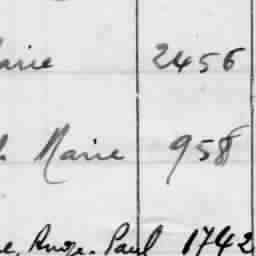 arie 2456
Marie 958
Ange. Paul 1742